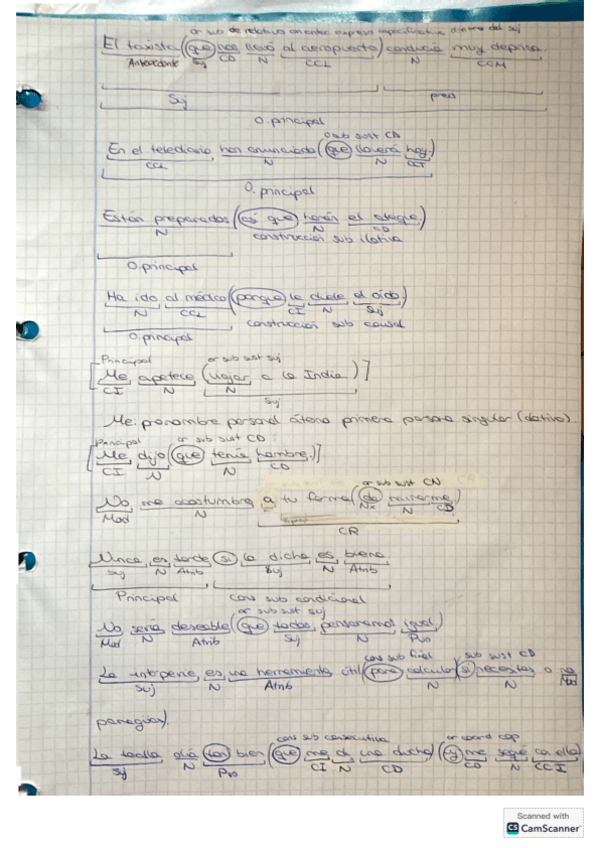 or sub de relativo con antec expreso especificativa dentro del suj
El taxista (que nos llevó al aeropuerto) conducía muy deprisa.
Antecedente Suj CD N CCL N CCM
Suj pred
O. principal
o sub sust CD
En el telediario han anunciado (que lloverá hoy.)
CCL N N CCT
O. principal
Están preparados (así que harán el ataque.)
N N CD
construcción sub ilativa
O. principal
Ha ido al médico (porque le duele el oído.)
N CCL CI N Suj
construcción sub causal
O. principal
Principal or sub sust suj
[Me apetece (viajar a la India)]
CI N N
Suj
Me: pronombre personal átono primera persona singular (dativo).
Principal or sub sust CD
[Me dijo (que tenía hambre.)]
CI N N CD
or sub sust CN
No me acostumbro a tu forma (de mirarme)
Mod N Nx N CD
CR
Nunca es tarde si la dicha es buena
Suj N Atrib Suj N Atrib
Principal cons sub condicional
or sub sust suj
No sería deseable (que todos pensáramos igual.)
Mod N Atrib Suj N Pvo
cons sub final sub sust CD
La intemperie es una herramienta útil (para calcular (si necesitas o no
Suj N Atrib N N Md
paraguas).
cons sub consecutiva or coord cop
La toalla olía tan bien (que me di una ducha) (y me sequé con ella)
Suj N Pvo CI N CD CD N CCI
Scanned with
CS CamScanner